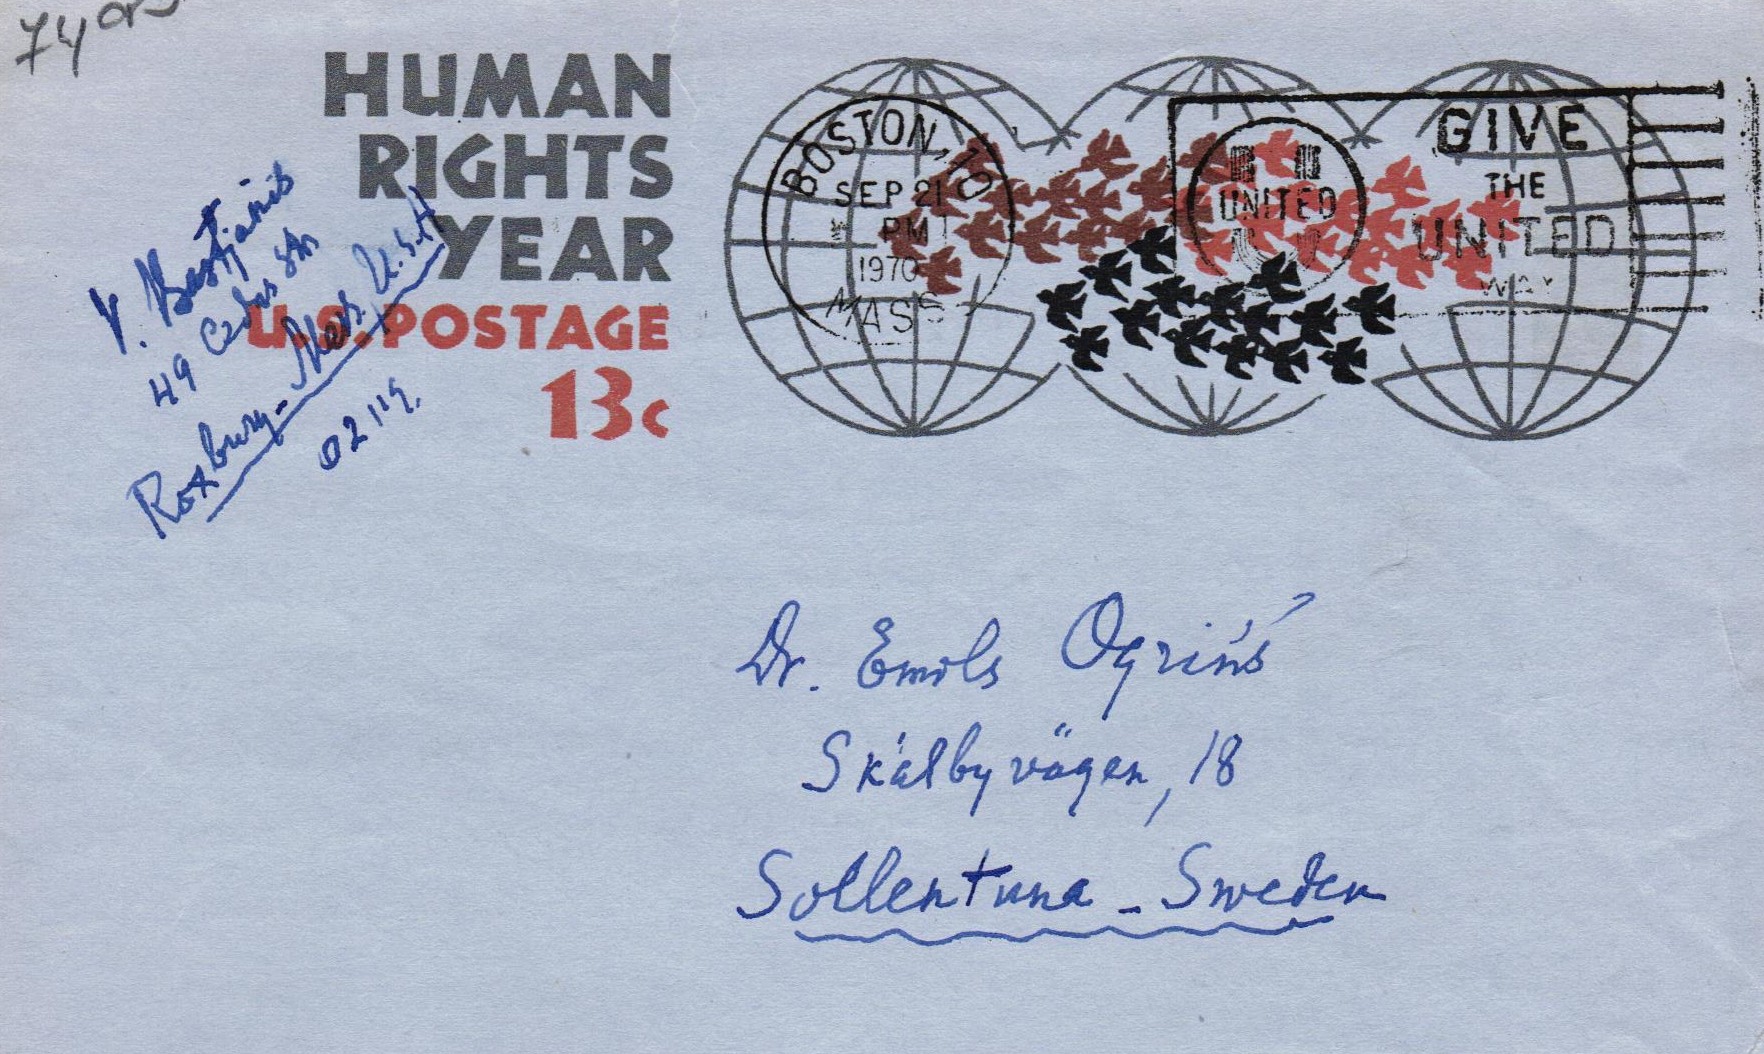 HUMAN
RIGHTS
YEAR
U.S. POSTAGE
13c
BOSTON,
SEP 21
PM
1970
MASS
UNITED
GIVE
THE
UNITED
WAY
V. Bastjanis
49 Cedar Str
Roxbury - Mass. U.S.A
02119.
Dr. Emils Ogriņš
Skálbyvägen, 18
Sollentuna - Sweden